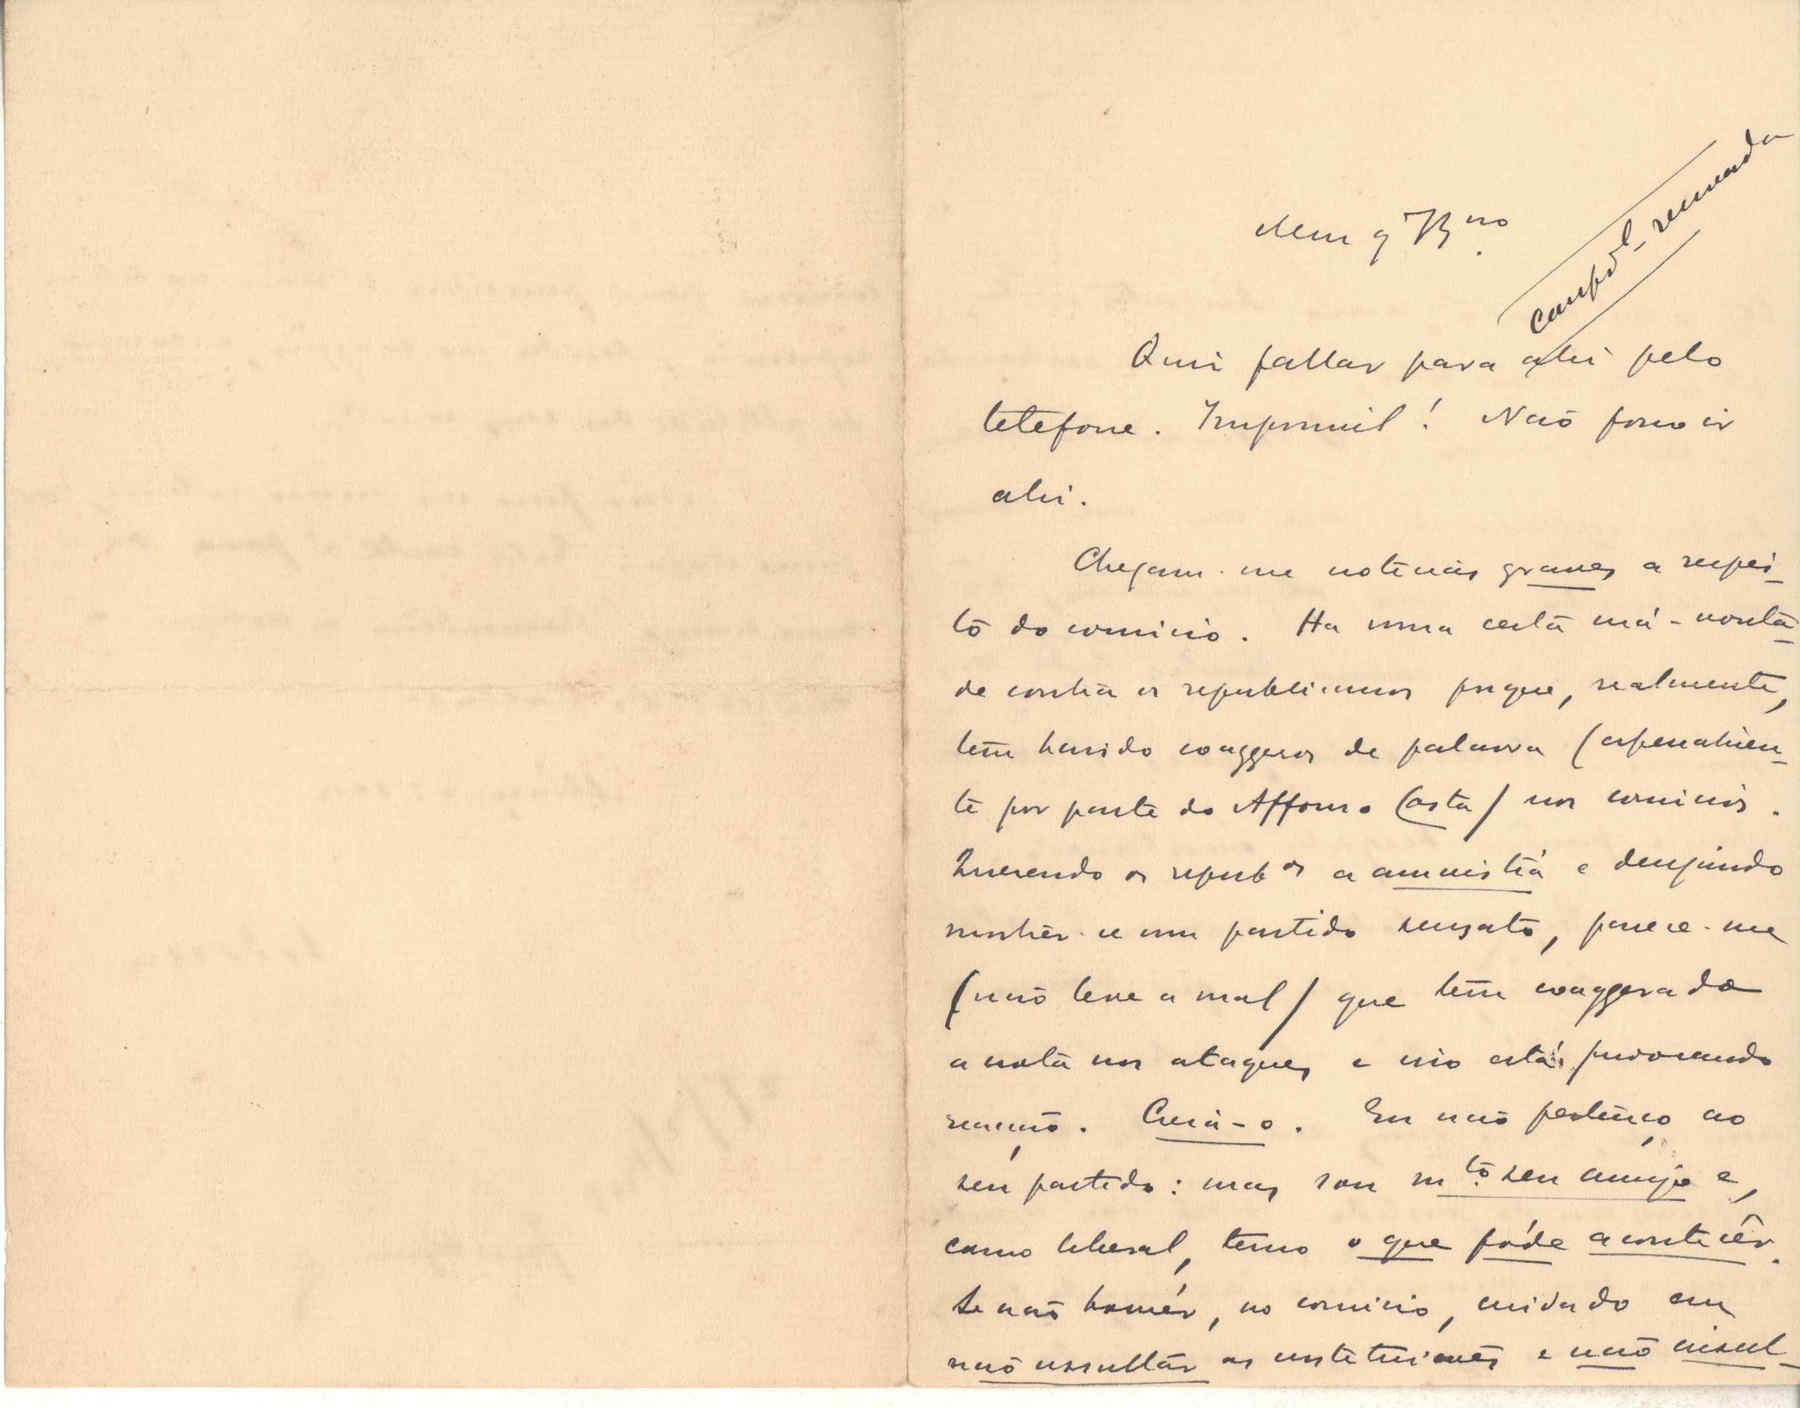 Meu q. B.no
confid.l - reservada
Quis fallar para ahi pelo
telefone. Impossivel! Não posso ir
ahi.
Chegam-me noticias graves a respei-
to do comicio. Ha uma certa má-vonta-
de contra os republicanos porque, realmente,
tem havido exaggeros de palavra (especialmen-
te por parte do Affonso Costa) nos comicios.
Querendo os repub.os a amnistia e desejando
mostrar-se um partido sensato, parece-me
(não leve a mal) que tem exaggerado
a nota nos ataques e isso está provocando
reacção. Creia-o. Eu não pertenço ao
seu partido: mas sou m.to seu amigo e,
como liberal, temo o que póde acontecêr.
Se não houvér, no comicio, cuidado em
não insultar as instituições e não insul-